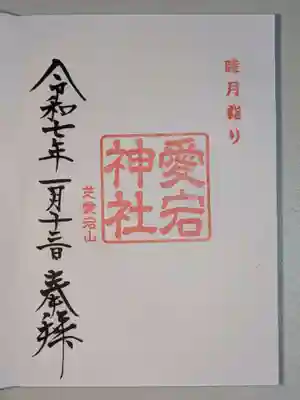 睦月詣り
愛宕
神社
芝愛宕山
令和七年一月十三日 奉拝